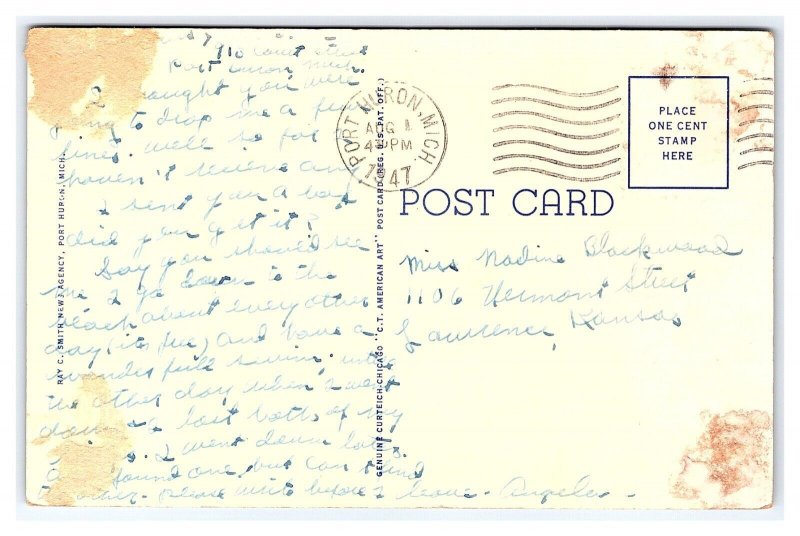 710 Court Street
Port Huron Mich.
thought you were
going to drop me a few
lines. well so far I
haven't receive any
I sent you a
did you get it?
Say you should see
me I go down to the
beach about every other
day (its fun) and have a
wonder full swim. until
the other day when I went
down & lost both of my
I went down later
and found one, but can't find
other. Please write before I leave. Angela -
RAY C. SMITH NEWS AGENCY, PORT HURON, MICH.
GENUINE CURTEICH-CHICAGO "C.T. AMERICAN ART" POST CARD (REG. U.S. PAT. OFF.)
PORT HURON, MICH.
AUG 1
4 PM
1947
PLACE
ONE CENT
STAMP
HERE
POST CARD
Miss Nadine Blackwood
1106 Vermont Street
Lawrence, Kansas